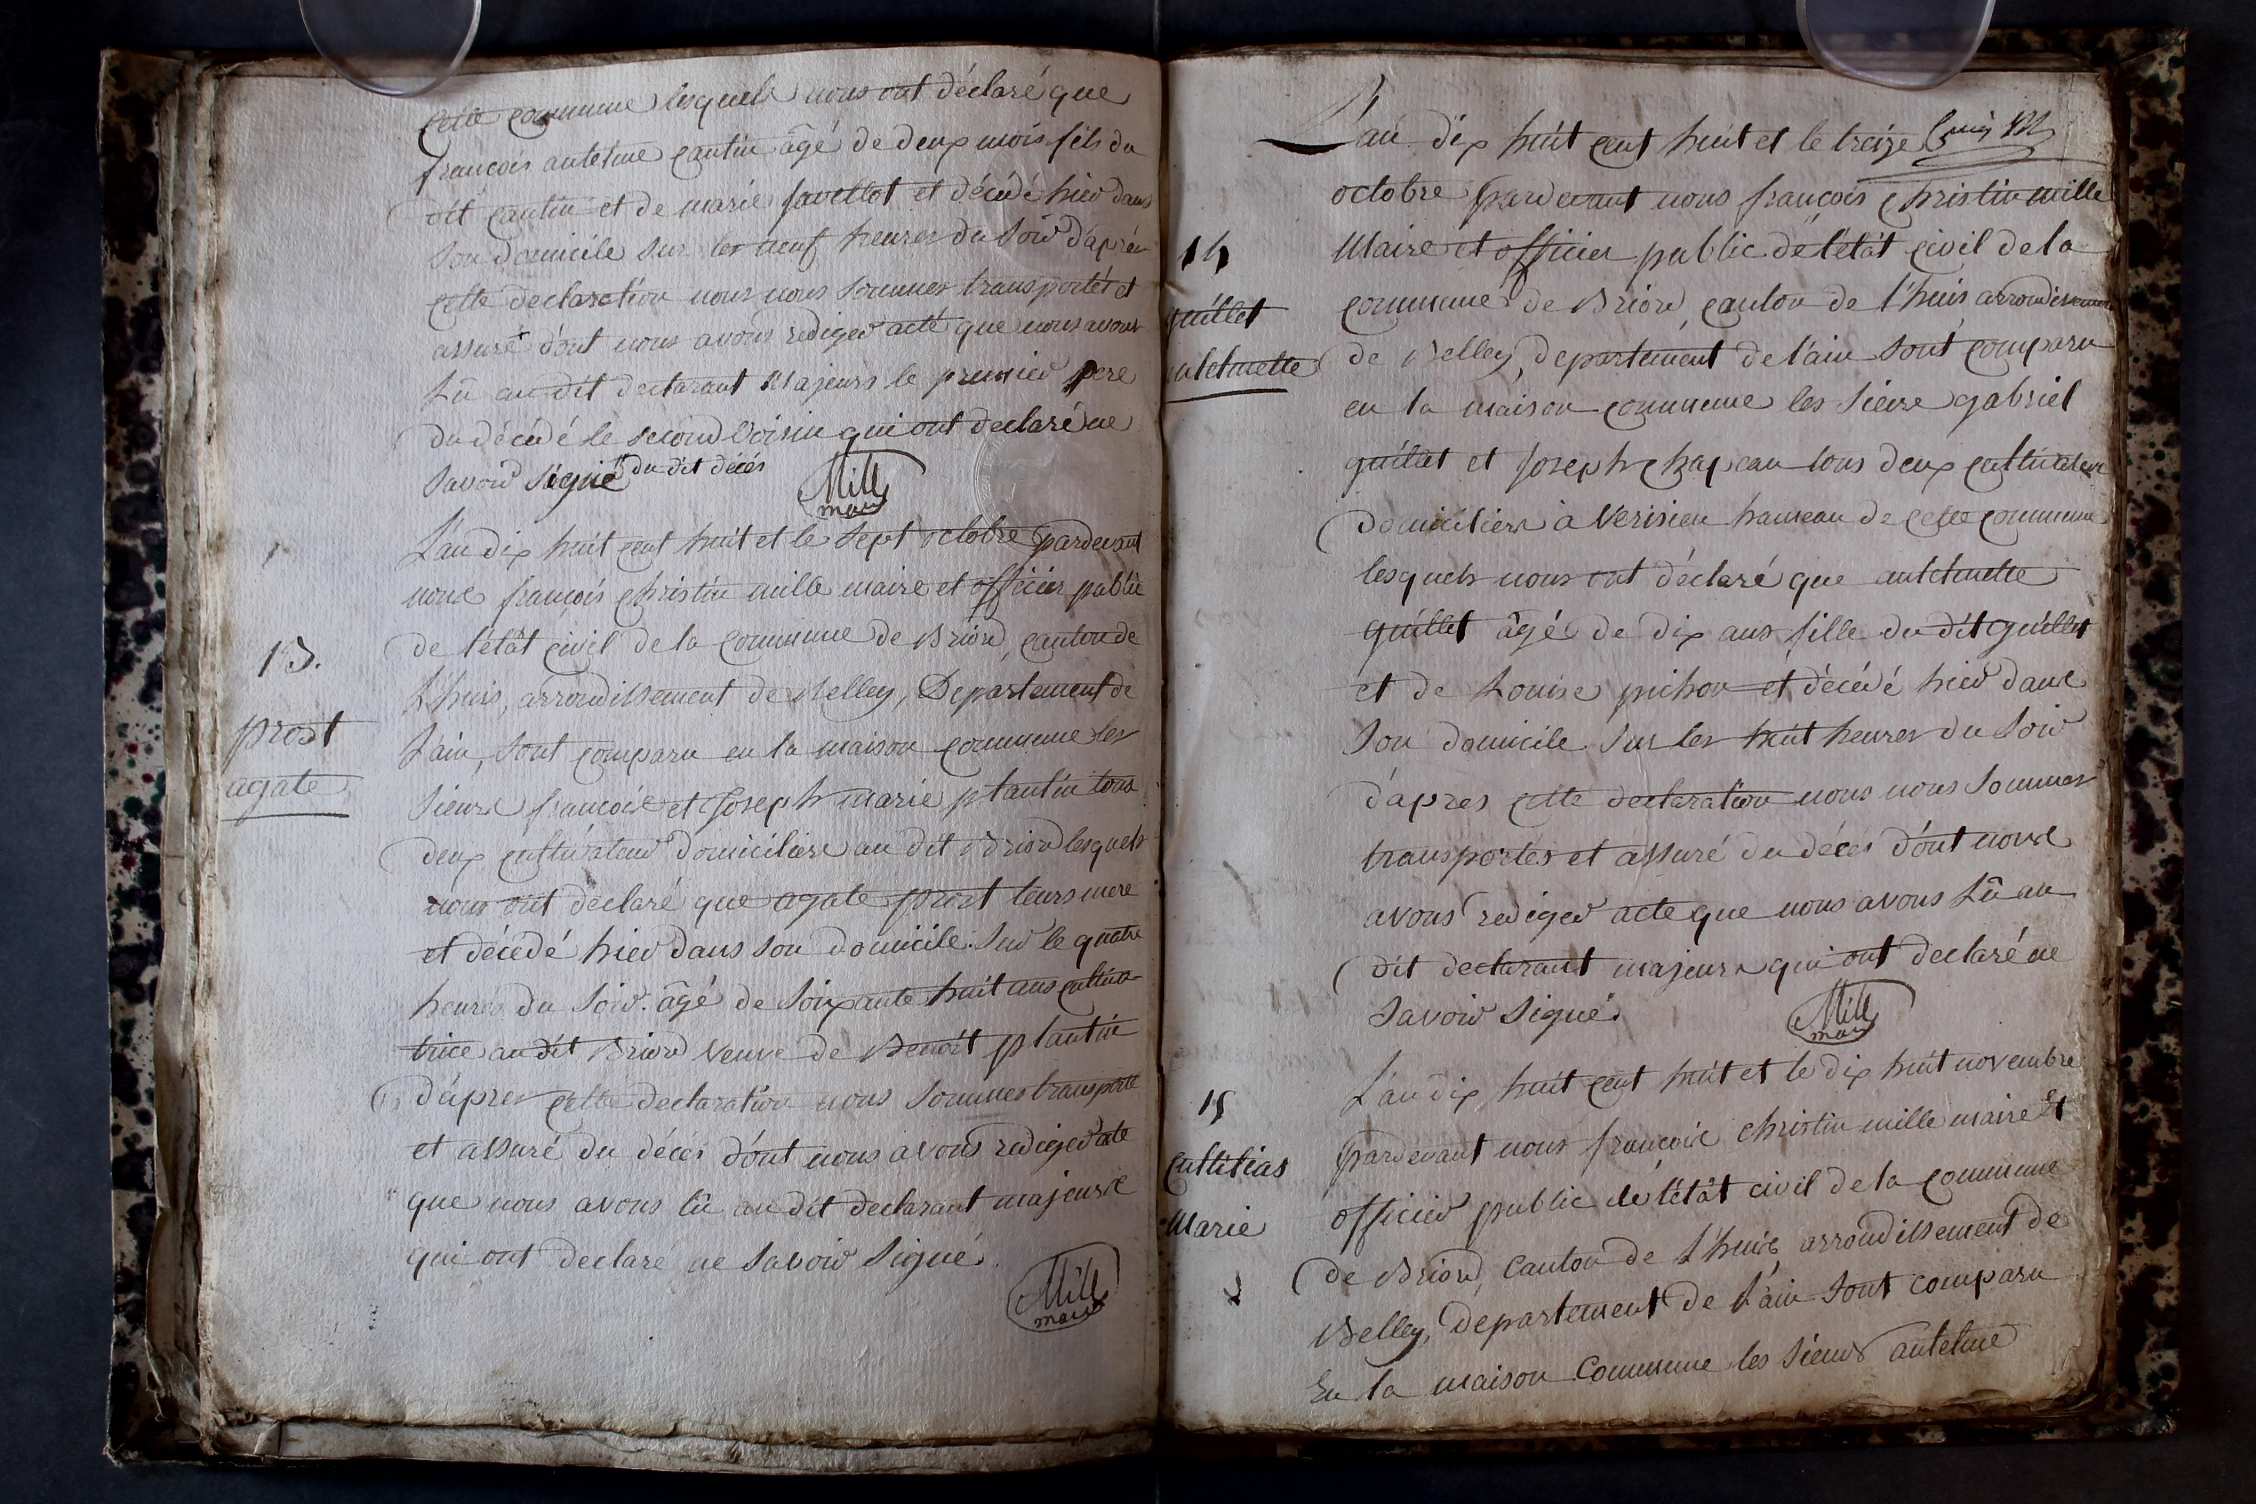 cette commune lesquels nous ont déclaré que
françois antelme cantin âgé de deux mois fils du
dit cantin et de marie favellot et décédé hier dans
son domicile sur les neuf heures du soir d'après
cette declaration nous nous sommes transportés et
assuré d'ont nous avons rediger acte que nous avons
Lû au dit declarant Majeurs le premier pere
du décédé le second voisin qui ont declaré ne
savoir signé du dit décés
Mille
maire
L'an dix huit cent huit et le sept octobre pardevant
nous françois christin mille maire et officier public
de l'état civil de la commune de Briord, canton de
L'huis, arrondissement de Belley, Departement de
L'ain, sont comparu en la maison commune les
13.
prost
agate
sieurs francois et Joseph marie plantin tous
deux cultivateur domiciliers au dit Briord lesquels
nous ont declaré que agate prost leurs mere
et décédé hier dans son domicile sur le quatre
heures du soir. âgé de soixante huit ans cultiva
trice audit Briord veuve de Benoit plantin
d'apres cette declaration nous sommes transporté
et assuré du décés d'ont nous avons rediger acte
que nous avons lû au dit declarant majeurs
qui ont declaré ne savoir signé.
Mille
maire
L'an dix huit cent huit et le treize
octobre pardevant nous françois christin mille
Maire et officier public de l'état civil de la
commune de Briord, canton de l'huis arrondissement
de Belley, departement de l'ain sont comparu
14
guillet
antelmette
en la maison commune les sieurs gabriel
guillet et Joseph chapeau tous deux cultivateur
domiciliers à Verisieu hameau de cette commune
lesquels nous ont déclaré que antelmette
guillet âgé de dix ans fille du dit guillet
et de Louise pichon et décédé hier dans
son domicile sur les huit heures du soir
d'apres cette declaration nous nous sommes
transportés et assuré du décés d'ont nous
avons rediger acte que nous avons Lû au
dit declarant majeurs qui ont declaré ne
savoir signé.
Mille
maire
L'an dix huit cent huit et le dix huit novembre
pardevant nous françois christin mille maire et
officier public de l'état civil de la commune
de Briord, canton de L'huis, arrondissement de
Belley, departement de L'ain sont comparu
En la maison commune les sieurs antelme
15
Marie